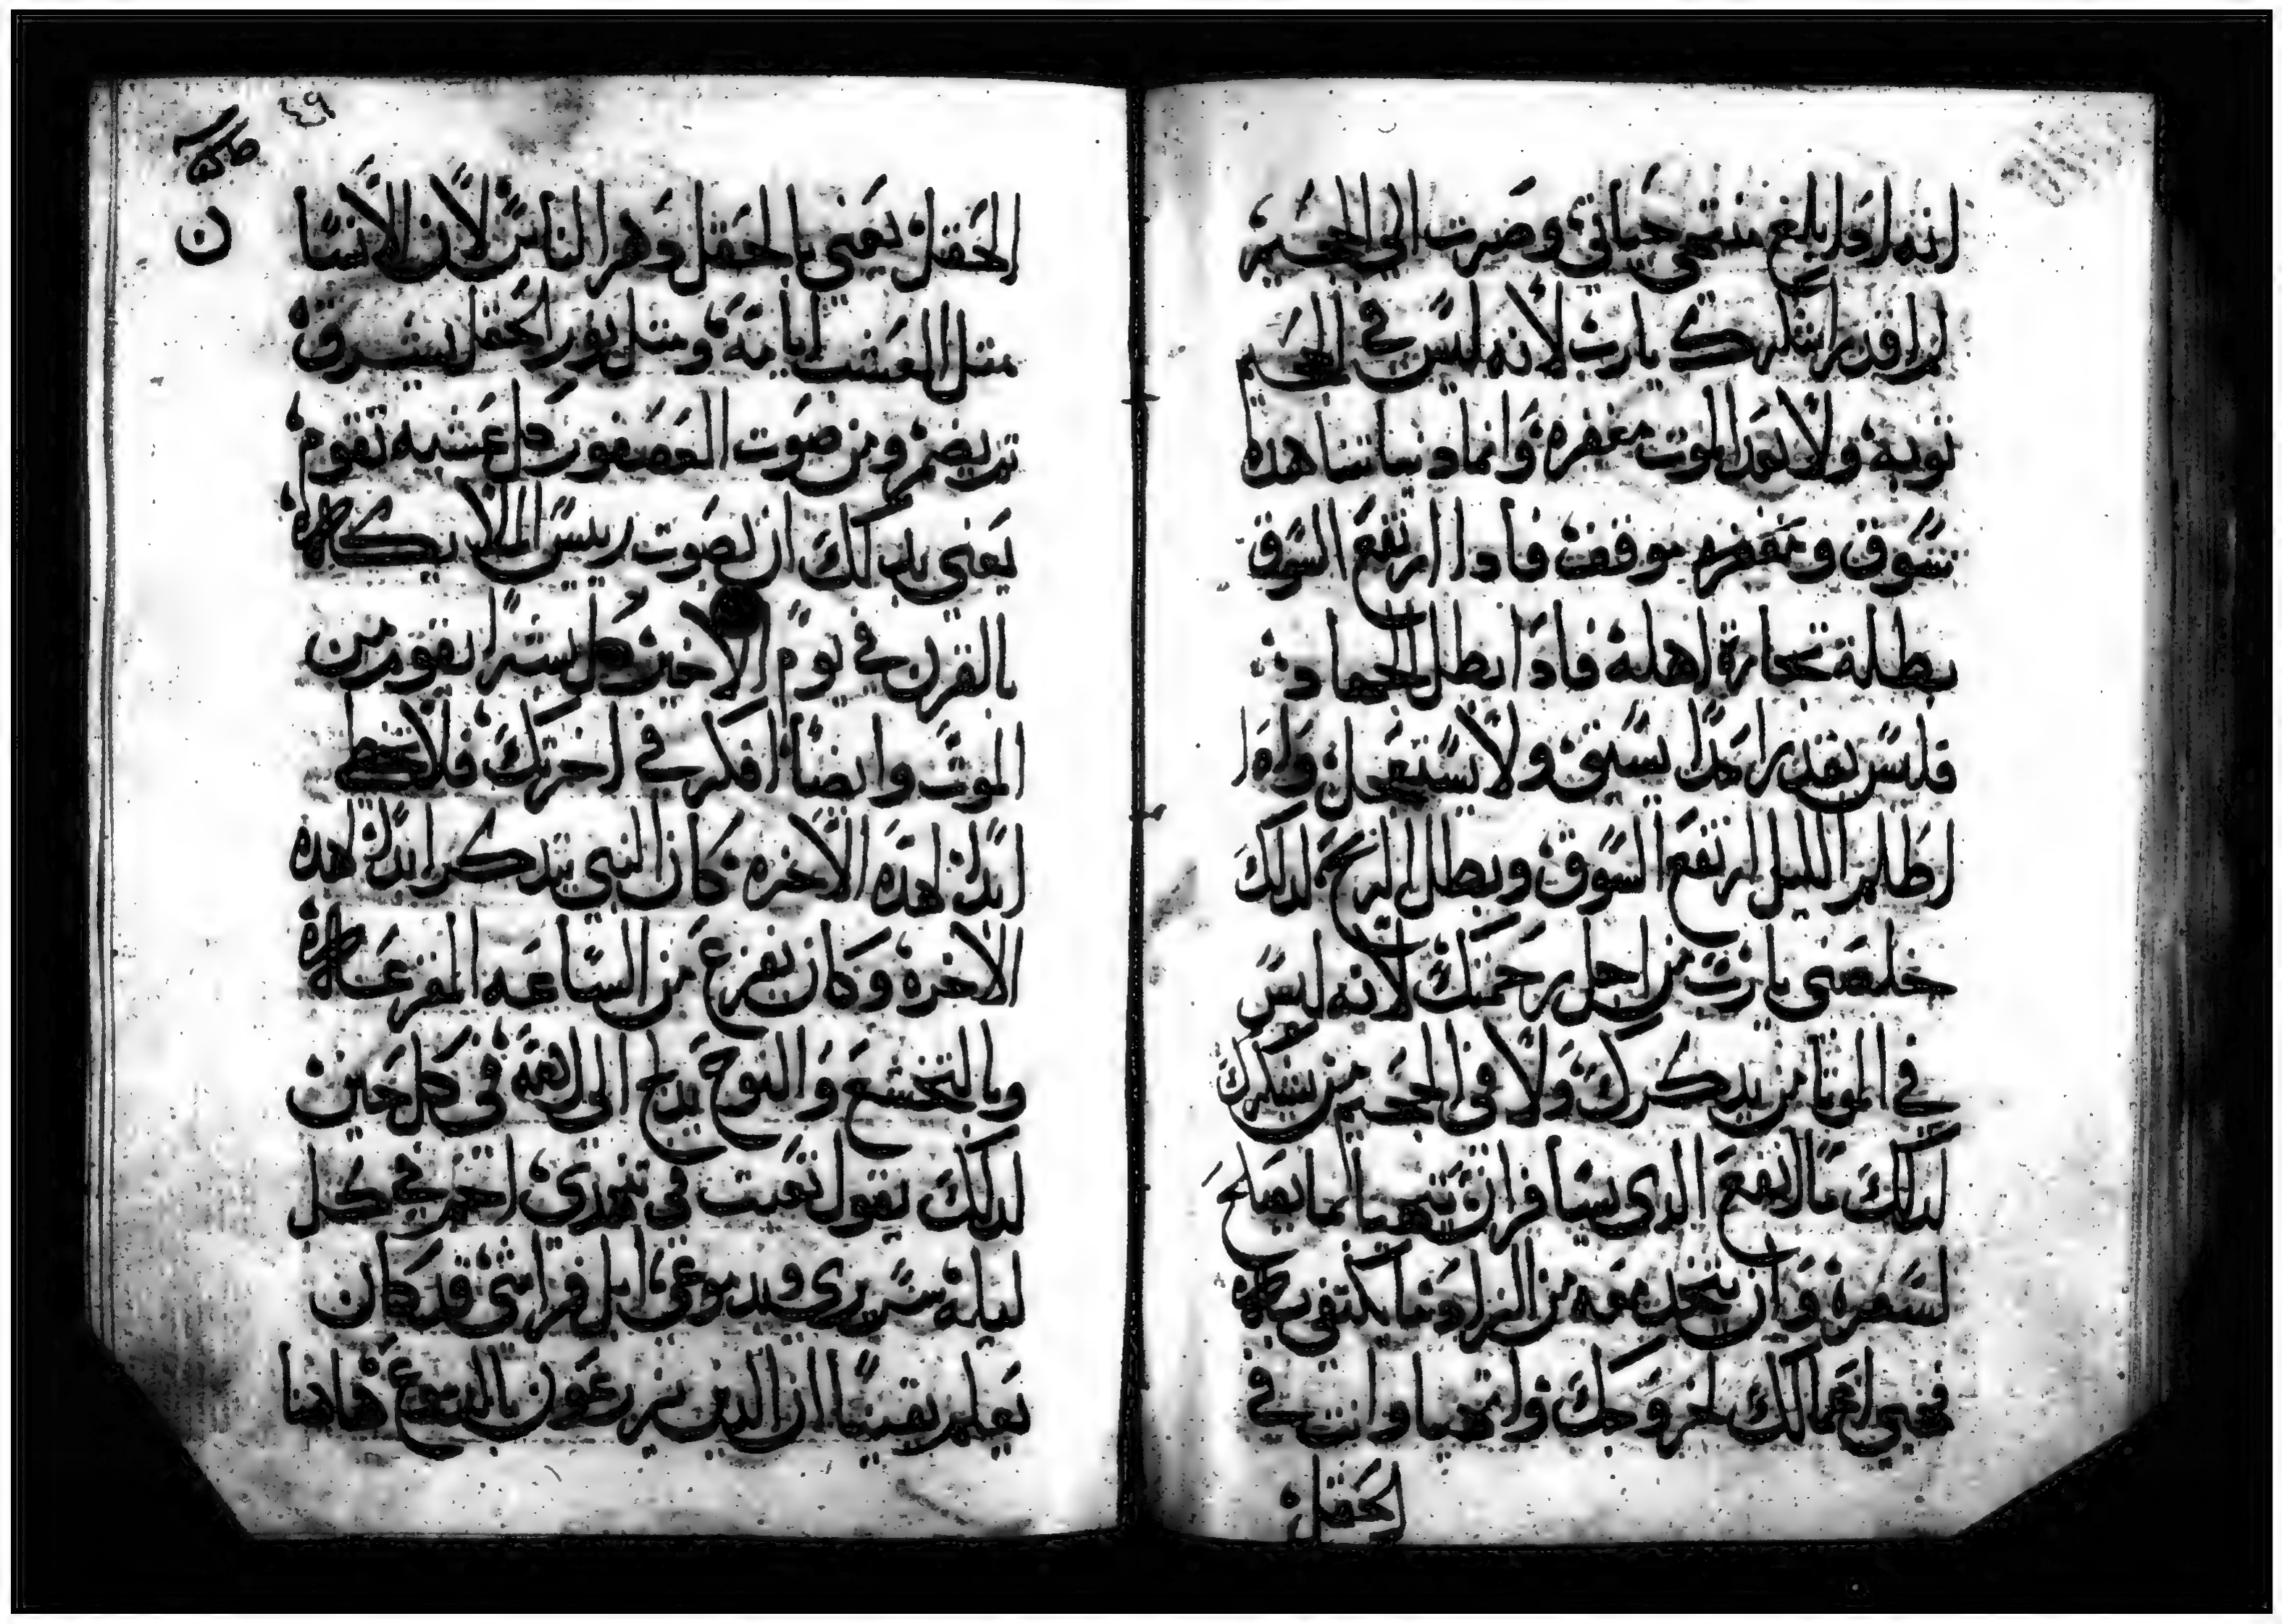 انه اذا بلغ منتهى حياتى وصرت الى الجحيم
لم اقدر اشكرك يارب لانه ليس في الجحيم
توبة ولا بعد الموت مغفره وانما دنياتنا هذه
سوق ومغفره موقفت فادا ارتفع السوق
بطلة تجارة اهله فادا بطل الجهاد
فليس يقدر احدا يسبق ولا يستعجل واذا
اظلم الليل ارتفع السوق وبطل الربح لدلك
خلصنى يارب من اجل رحمتك لانه ليس
في الموتا من يدكرك ولا فى الجحيم من يشكرك
لدلك ما انفع الدى يسافر ان يتهيا لما يصلح
لسفره وان يتخد معه من الزاد ما يكتفى به
فهيى اعمالك لخروجك وانتهيا وانت في
الحقل
٤٩
الحقل يعنى بالحقل وهم الناس لان الانسان
مثل العشب ايامه ومثل نور الحقل يشرق
تم يضمر ومن صوت العصفور كل عشبه تقوم
يعنى بدلك ان بصوت رييس الملايكه
بالقرن في يوم الاخير كل بشرا يقوم من
الموت وايضا افكر في اخرتك فلا تخطى
ابدا لهذه الاخره كان النبي يتدكر ابدا لهده
الاخره وكان يفزع من الساعه المفزعه
وبالتخشع والنوح يدج الى الله فى كل حين
لدلك يقول تعبت في تنهدى احمم في كل
ليله سريرى وبدموعى ابل فراشى قد كان
يعلم يقينا ان الدين يزرعون بالدموع هاهنا